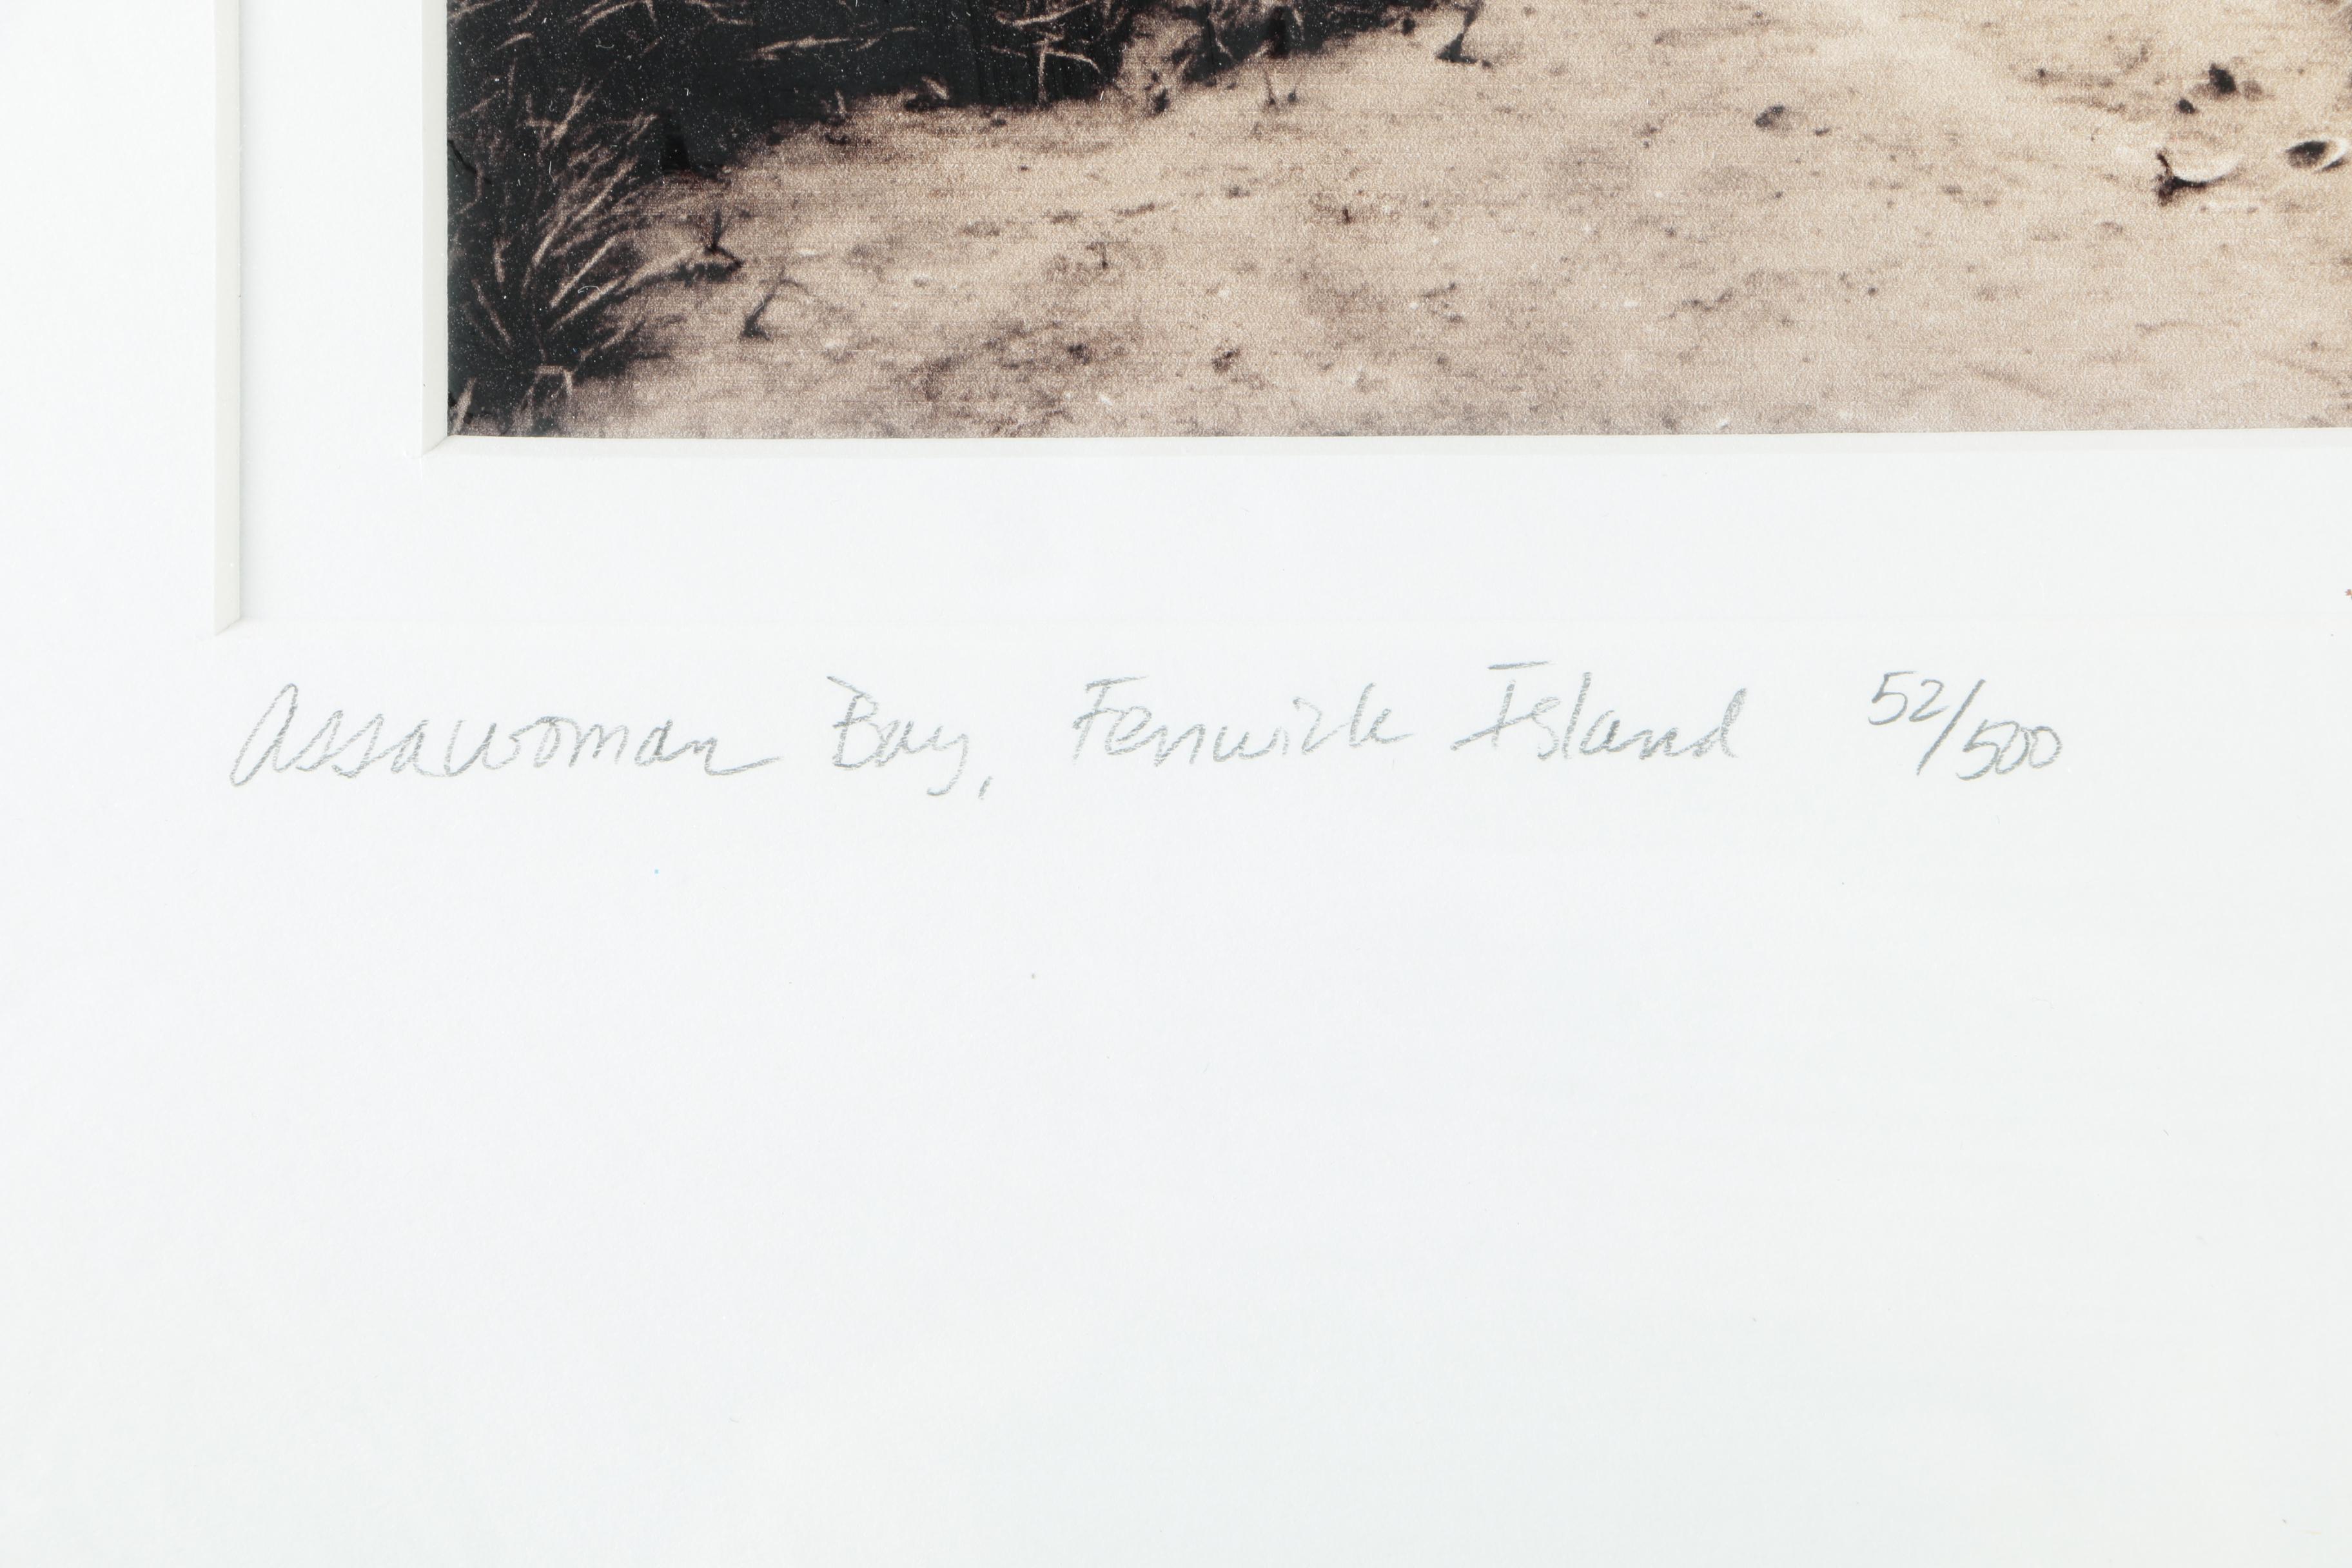 Assawoman Bay, Fenwick Island 52/500